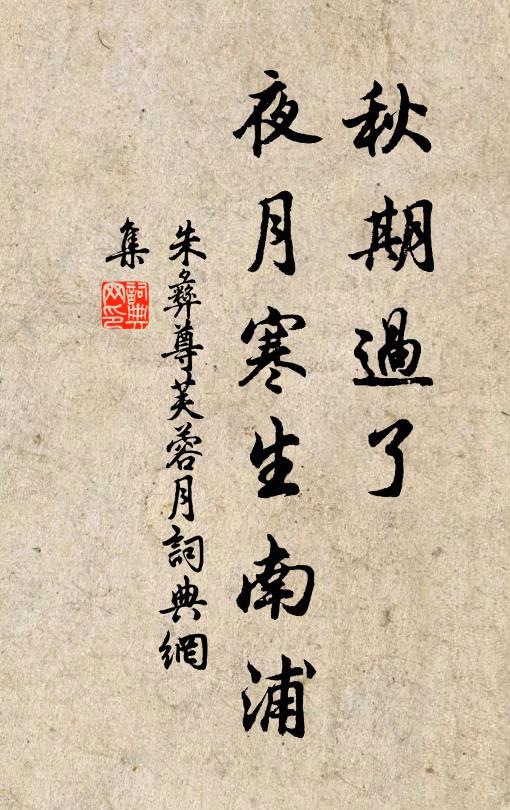 秋期過了
夜月寒生南浦
朱彝尊芙蓉月詞典網
集
詞典
网印